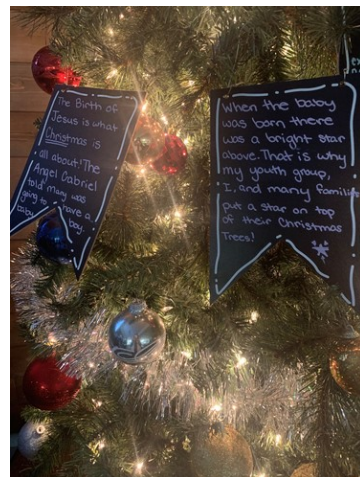 The Birth of
Jesus is what
Christmas is
all about! The
Angel Gabriel
told mary was
going to have a
baby boy.
When the baby
was born there
was a bright star
above. That is why
my youth group,
I, and many families
put a star on top
of their Christmas
Trees!